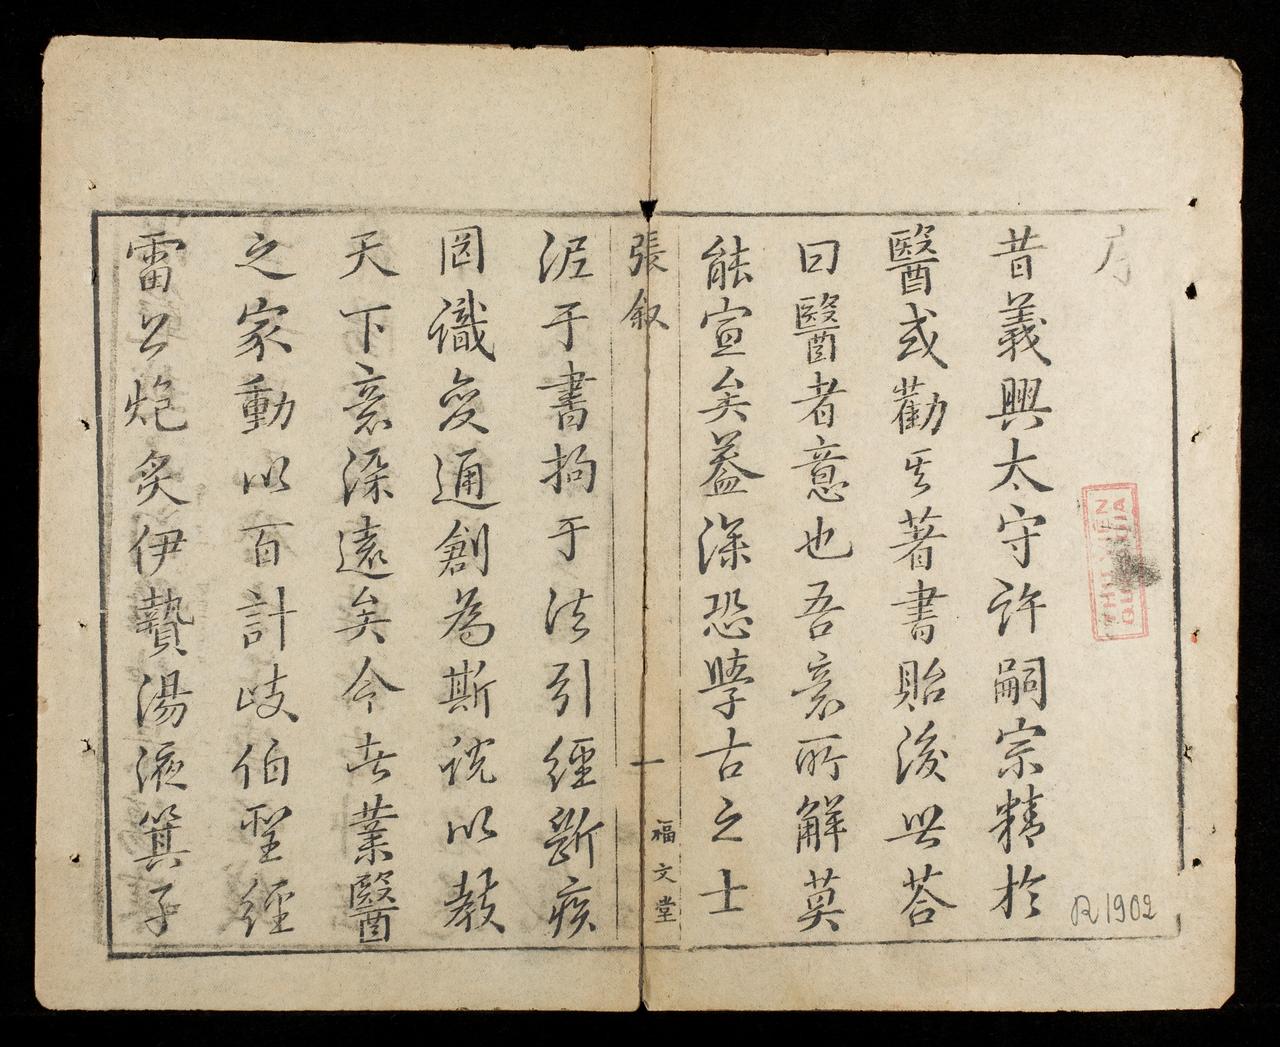 序
昔義興太守許嗣宗精於
醫或勸其著書貽後世荅
曰醫者意也吾意所解莫
能宣矣蓋深恐學古之士
張叙
一
福文堂
泥于書拘于法引經斷疾
罔識變通創為斯説以教
天下意深遠矣今世業醫
之家動以百計岐伯聖經
雷公炮炙伊贄湯液箕子
THƯ VIỆN
QUỐC GIA
R1902